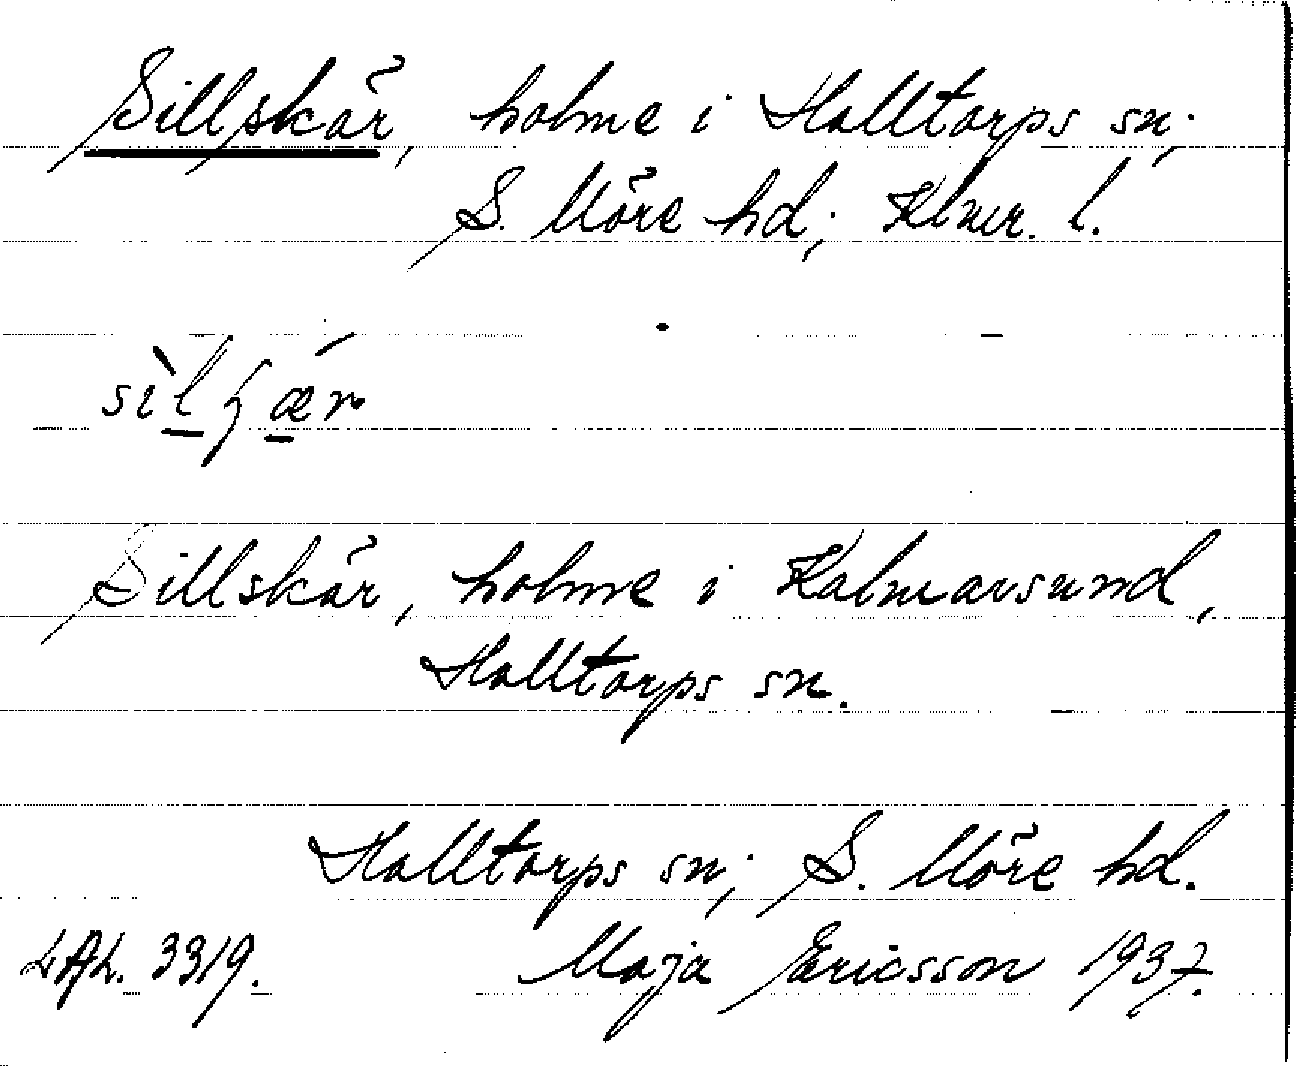 Sillskär, holme i Halltorps sn;
S. Möre hd; Klmr. l.
sìlʃǽr
Sillskär, holme i Kalmarsund,
Halltorps sn.
Halltorps sn; S. Möre hd.
LAL. 3319. Maja Ericsson 1937.